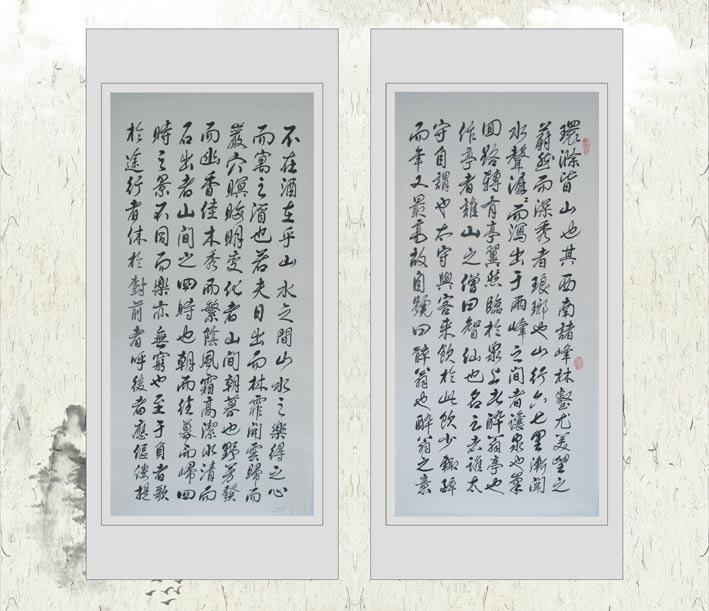 環滁皆山也其西南諸峰林壑尤美望之
蔚然而深秀者琅瑯也山行六七里漸聞
水聲潺〻而瀉出于兩峰之間者讓泉也峯
回路轉有亭翼然臨於泉上者醉翁亭也
作亭者誰山之僧曰智仙也名之者誰太
守自謂也太守與客來飲於此飲少輒醉
而年又最高故自號曰醉翁也醉翁之意
不在酒在乎山水之間山水之樂得之心
而寓之酒也若夫日出而林霏開雲歸而
巖穴暝晦明變化者山間朝暮也野芳發
而幽香佳木秀而繁陰風霜高潔水清而
石出者山間之四時也朝而往暮而歸四
時之景不同而樂亦無窮也至于負者歌
於途行者休於樹前者呼後者應傴僂提